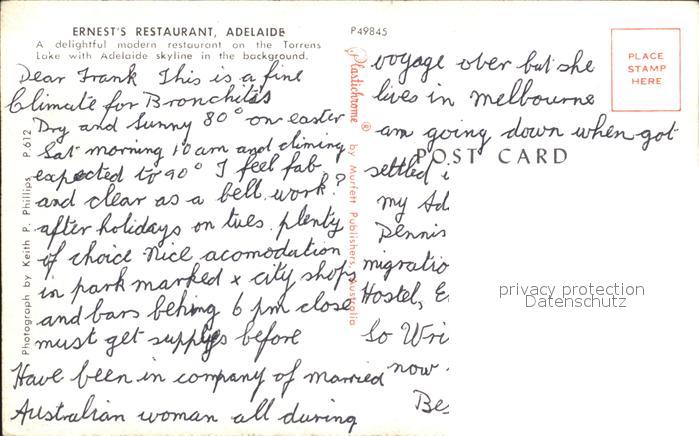 ERNEST'S RESTAURANT, ADELAIDE
A delightful modern restaurant on the Torrens
Lake with Adelaide skyline in the background.
Dear Frank This is a fine
Climate for Bronchitis
Dry and Sunny 80° on easter
Sat morning 10 am and climing
expected to 90° I feel fab
and clear as a bell. work?
after holidays on tues. plenty
of choice Nice acomodation
in park marked x city shops
and bars behing 6 pm close
must get supplys before
Have been in company of married
Australian woman all during
Photograph by Keith P. Phillips P.612
Plastichrome ® by Murfett Publishers Australia
P49845
PLACE
STAMP
HERE
POST CARD
voyage over but she
lives in melbourne
am going down when got
settled
my Ad
Dennis
migratio
Hostel, E
So Wri
now
Bes
privacy protection
Datenschutz